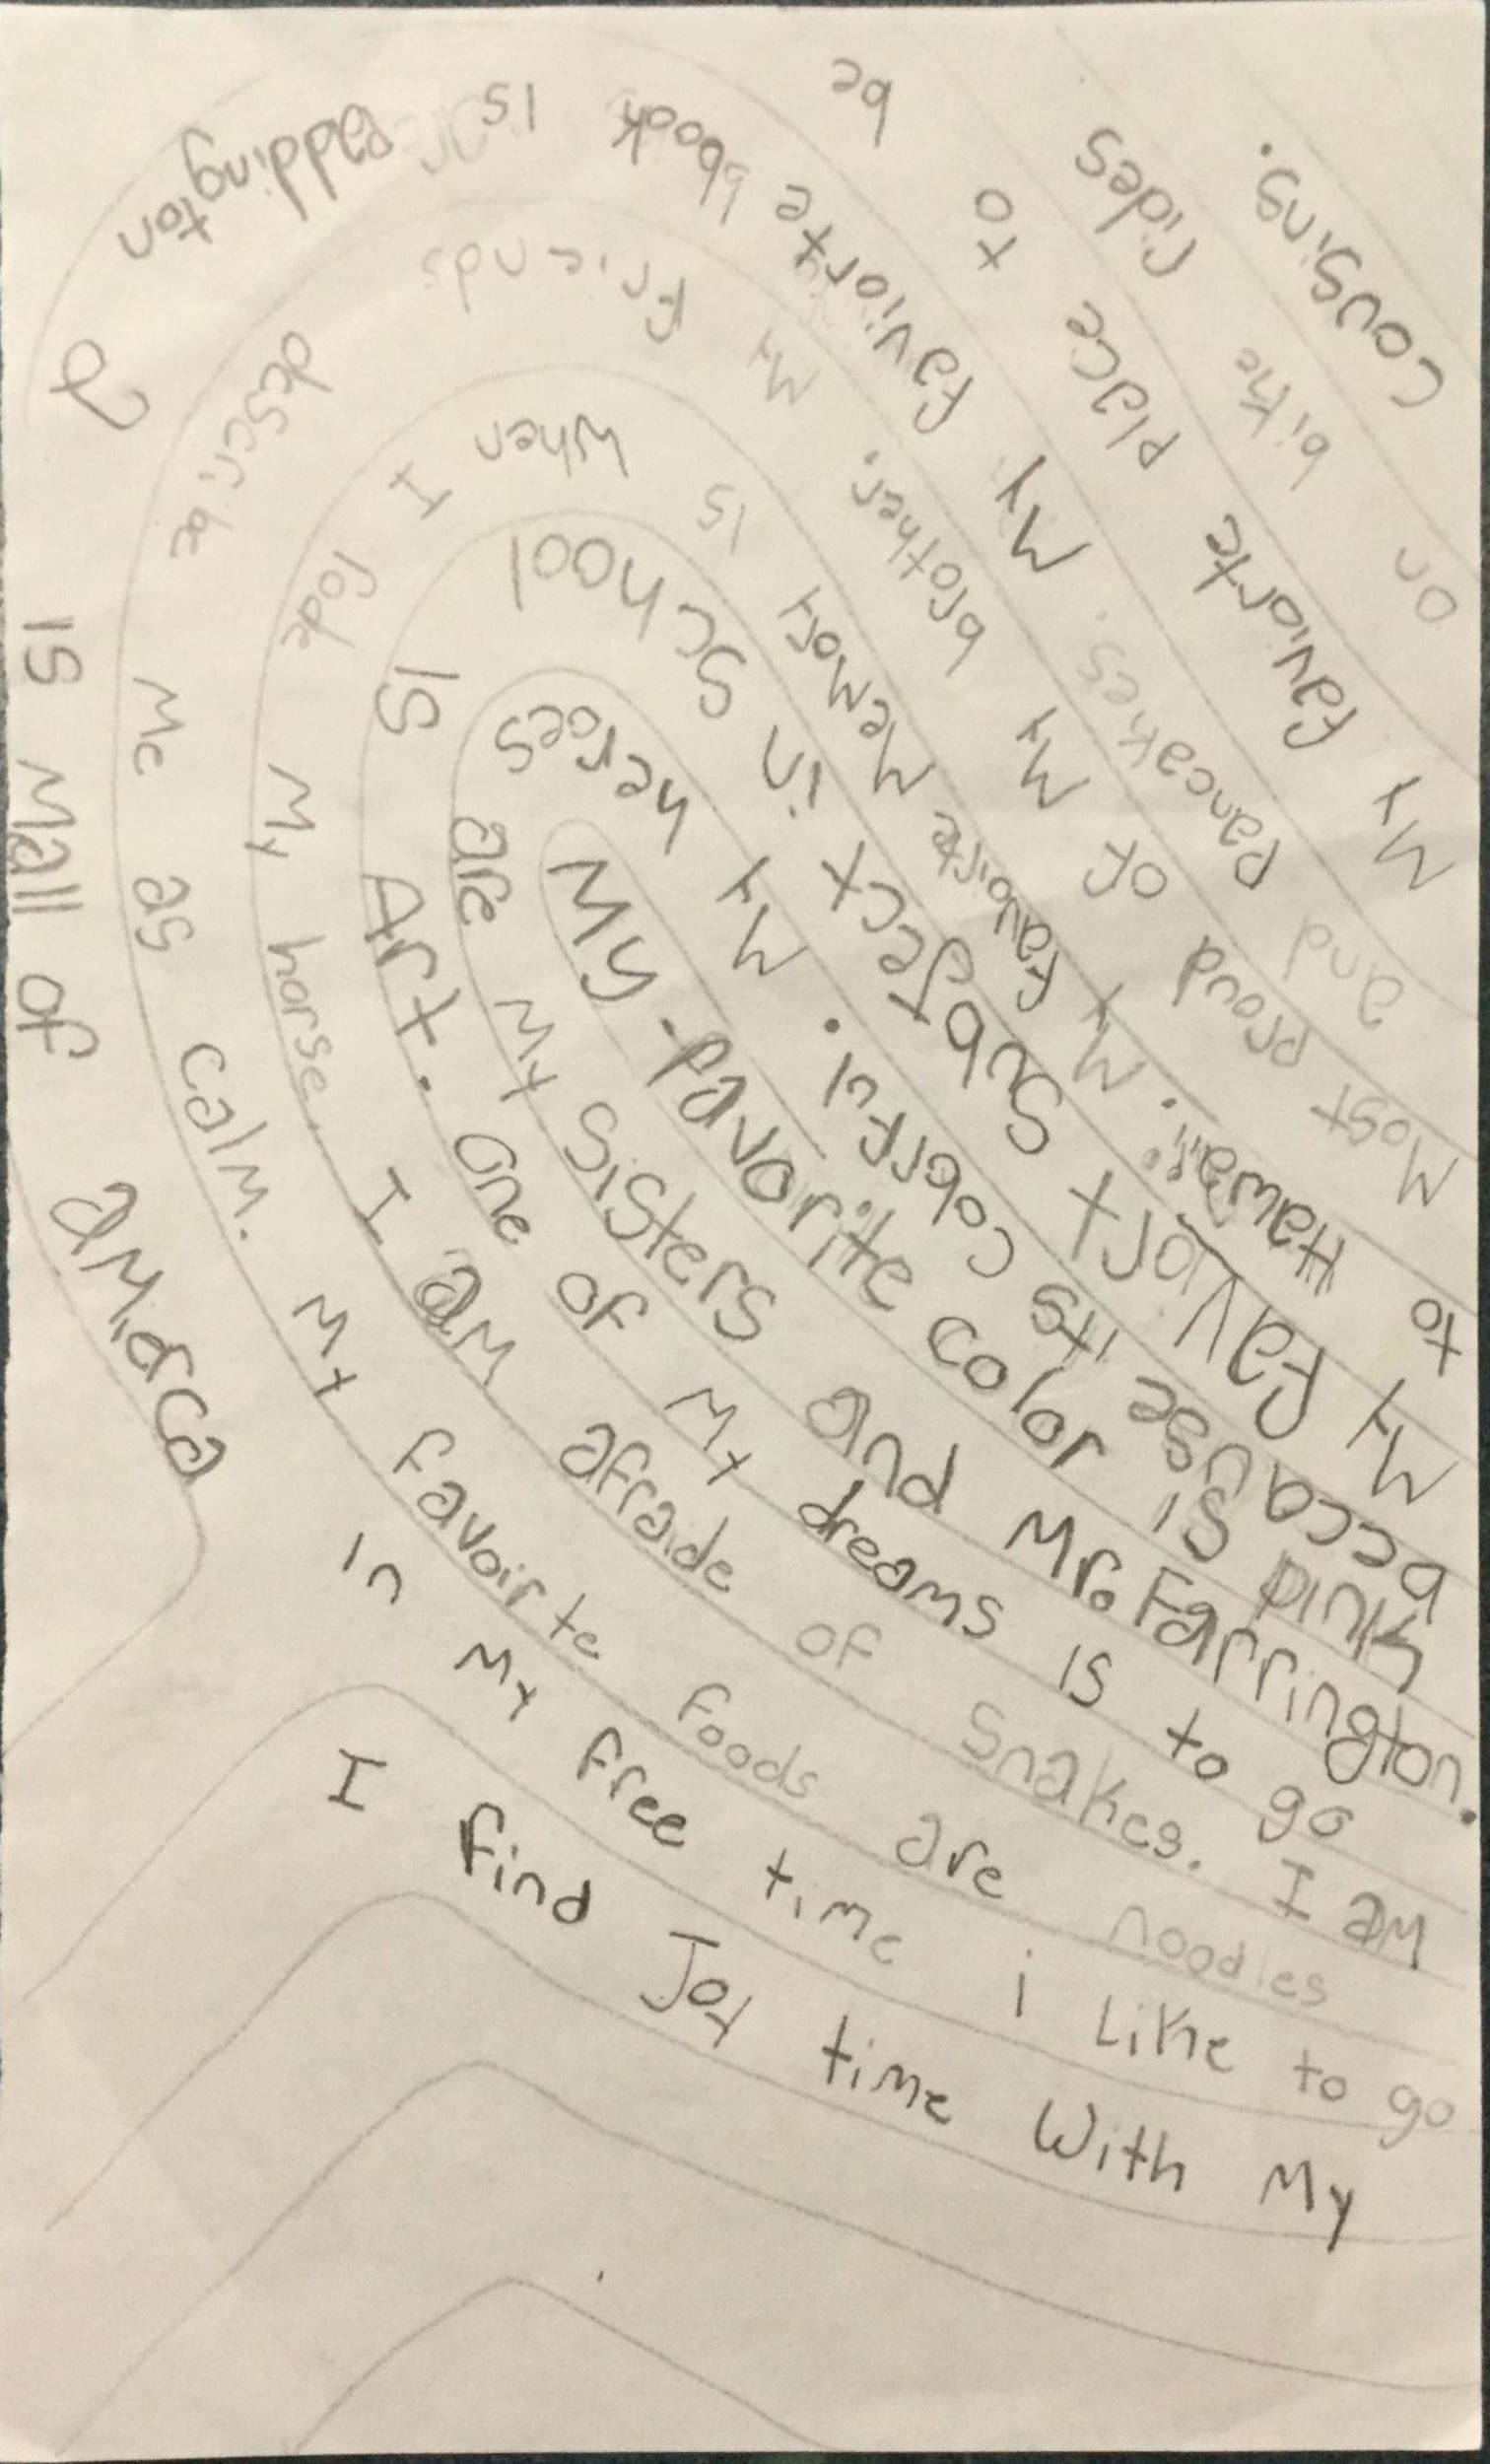 My favorite color is pink
beccause its colorful. My heroes
are My Sisters and Mr. Farrington.
My Favort Subject in School
Is Art. One of My dreams is to go
to Hawaii. My favoirte Memory is when I
rode My horse. I am afraide of snakes. I am
Most proud of My brother. My Friends
describe Me as calm. My favoirte foods are noodles
and pancakes. My faviorte bbook is Paddington 2
My faviorte place to be
is Mall of amerca
in My free time i like to go
on bike rides
I find Joy time with My
cousins.